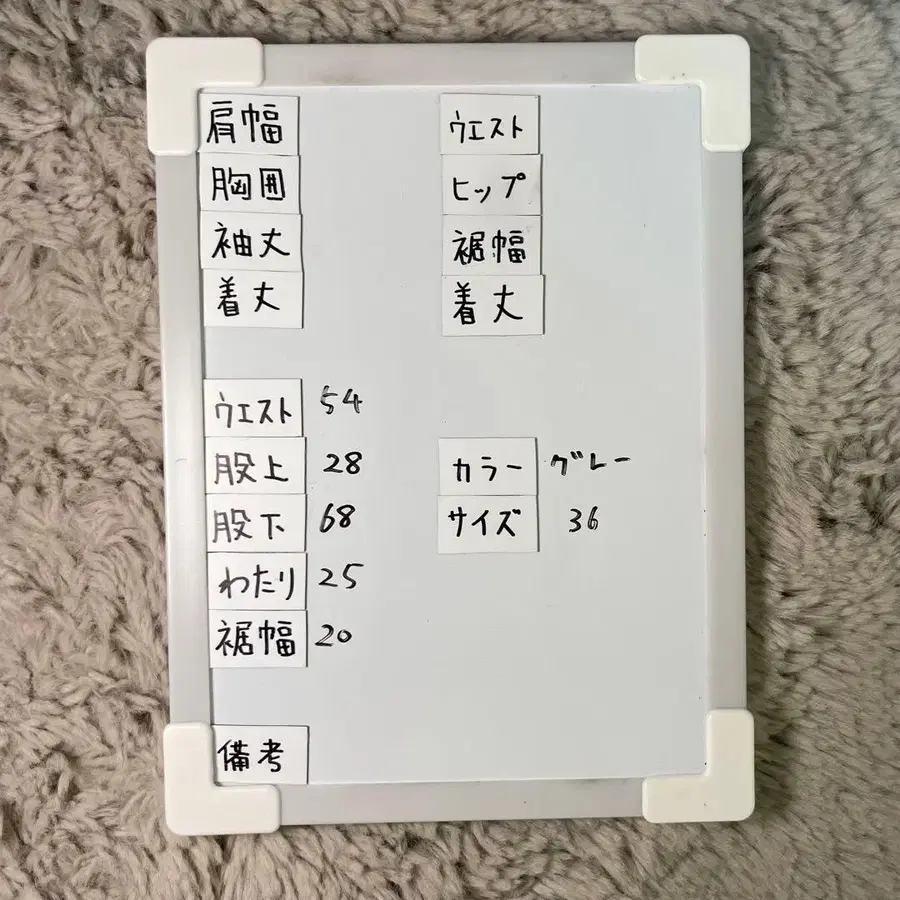 肩幅
胸囲
袖丈
着丈
ウエスト
ヒップ
裾幅
着丈
ウエスト 54
股上 28
股下 68
わたり 25
裾幅 20
カラー グレー
サイズ 36
備考